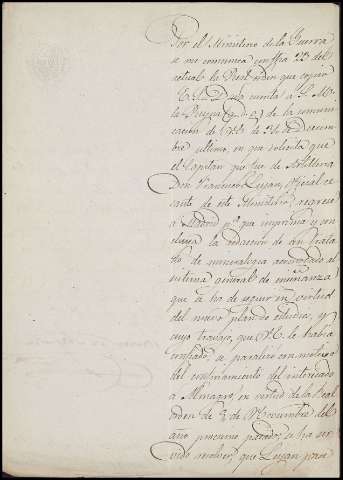 Por el Ministerio de la Guerra
se me comunica con fha 22 del
actual la Real orden que copio:
E. S. = Di cuenta á S. M.
la Reyna (q. D. g.) de la comuni-
cacion de V. E. de 31 de Diciem-
bre ultimo, en que solicita que
el Capitan que fue de Artilleria
Don Francisco Luxan, oficial ce-
sante de este Ministerio, regrese
a Madrid pª que imprima y con-
cluya la redaccion de un trata-
do de mineralogia acomodado al
sistema general de enseñanza
que se ha de seguir en virtud
del nuevo plan de estudios, y
cuyo trabajo, que V. E. le habia
confiado, se paralizó con motivo
del confinamiento del interesado
a Almagro, en virtud de la Real
orden de 2 de Noviembre del
año proximo pasado, se ha ser-
vido resolver, que Luxan pase